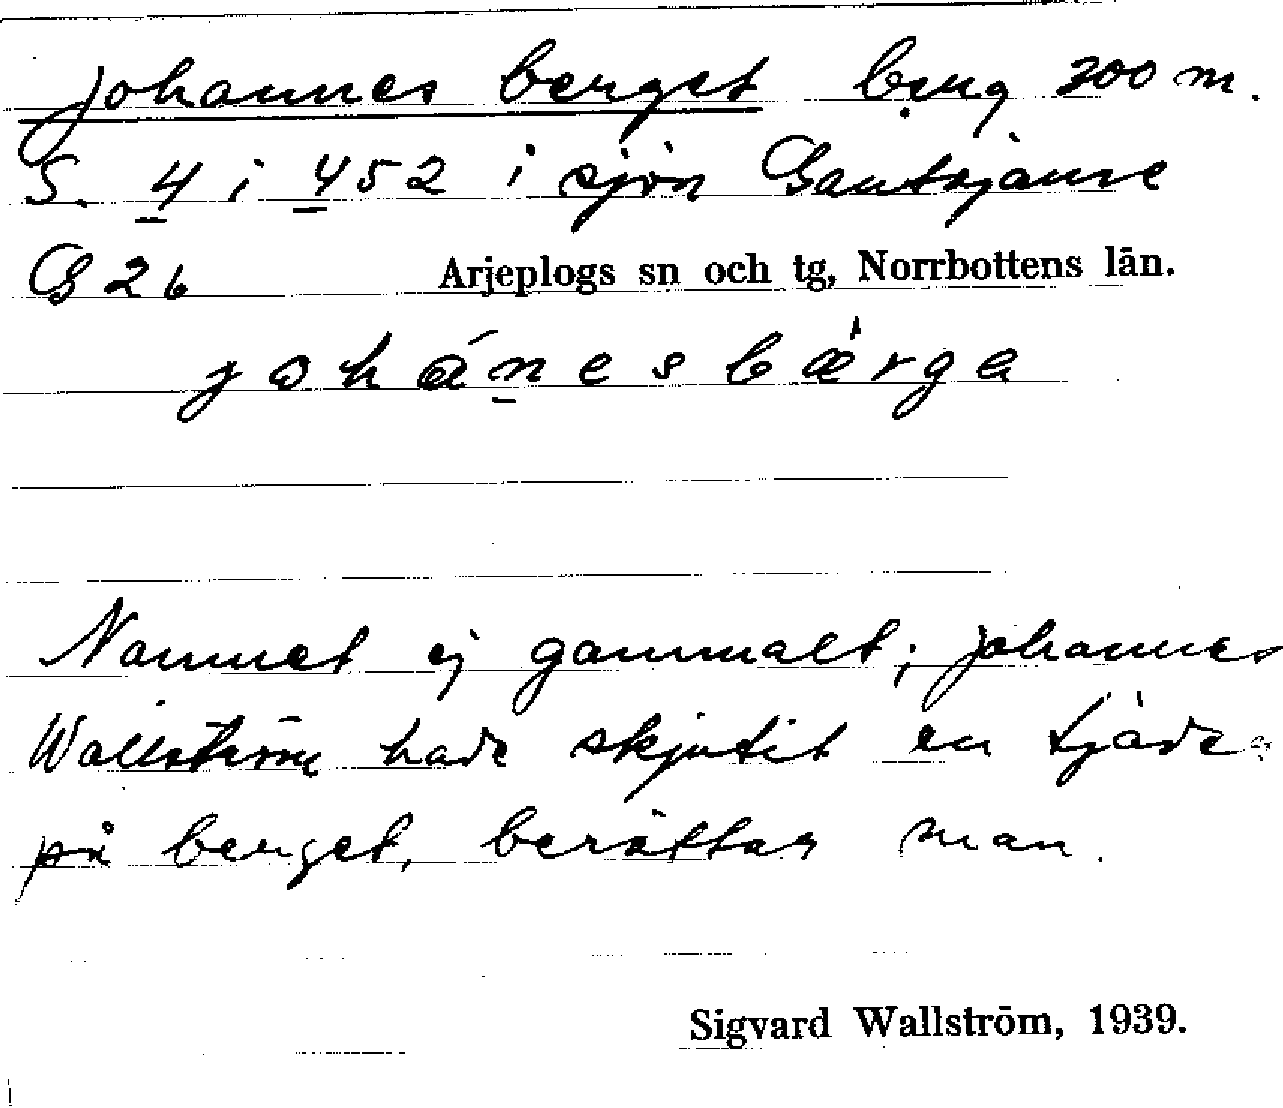 Johannesberget berg 200 m.
S. 4 i 452 i sjön Gautojaure
G 26 Arjeplogs sn och tg, Norrbottens län.
johánesbǽrga
Namnet ej gammalt; Johannes
Wallström hade skjutit en tjäder
på berget, berättar man.
Sigvard Wallström, 1939.